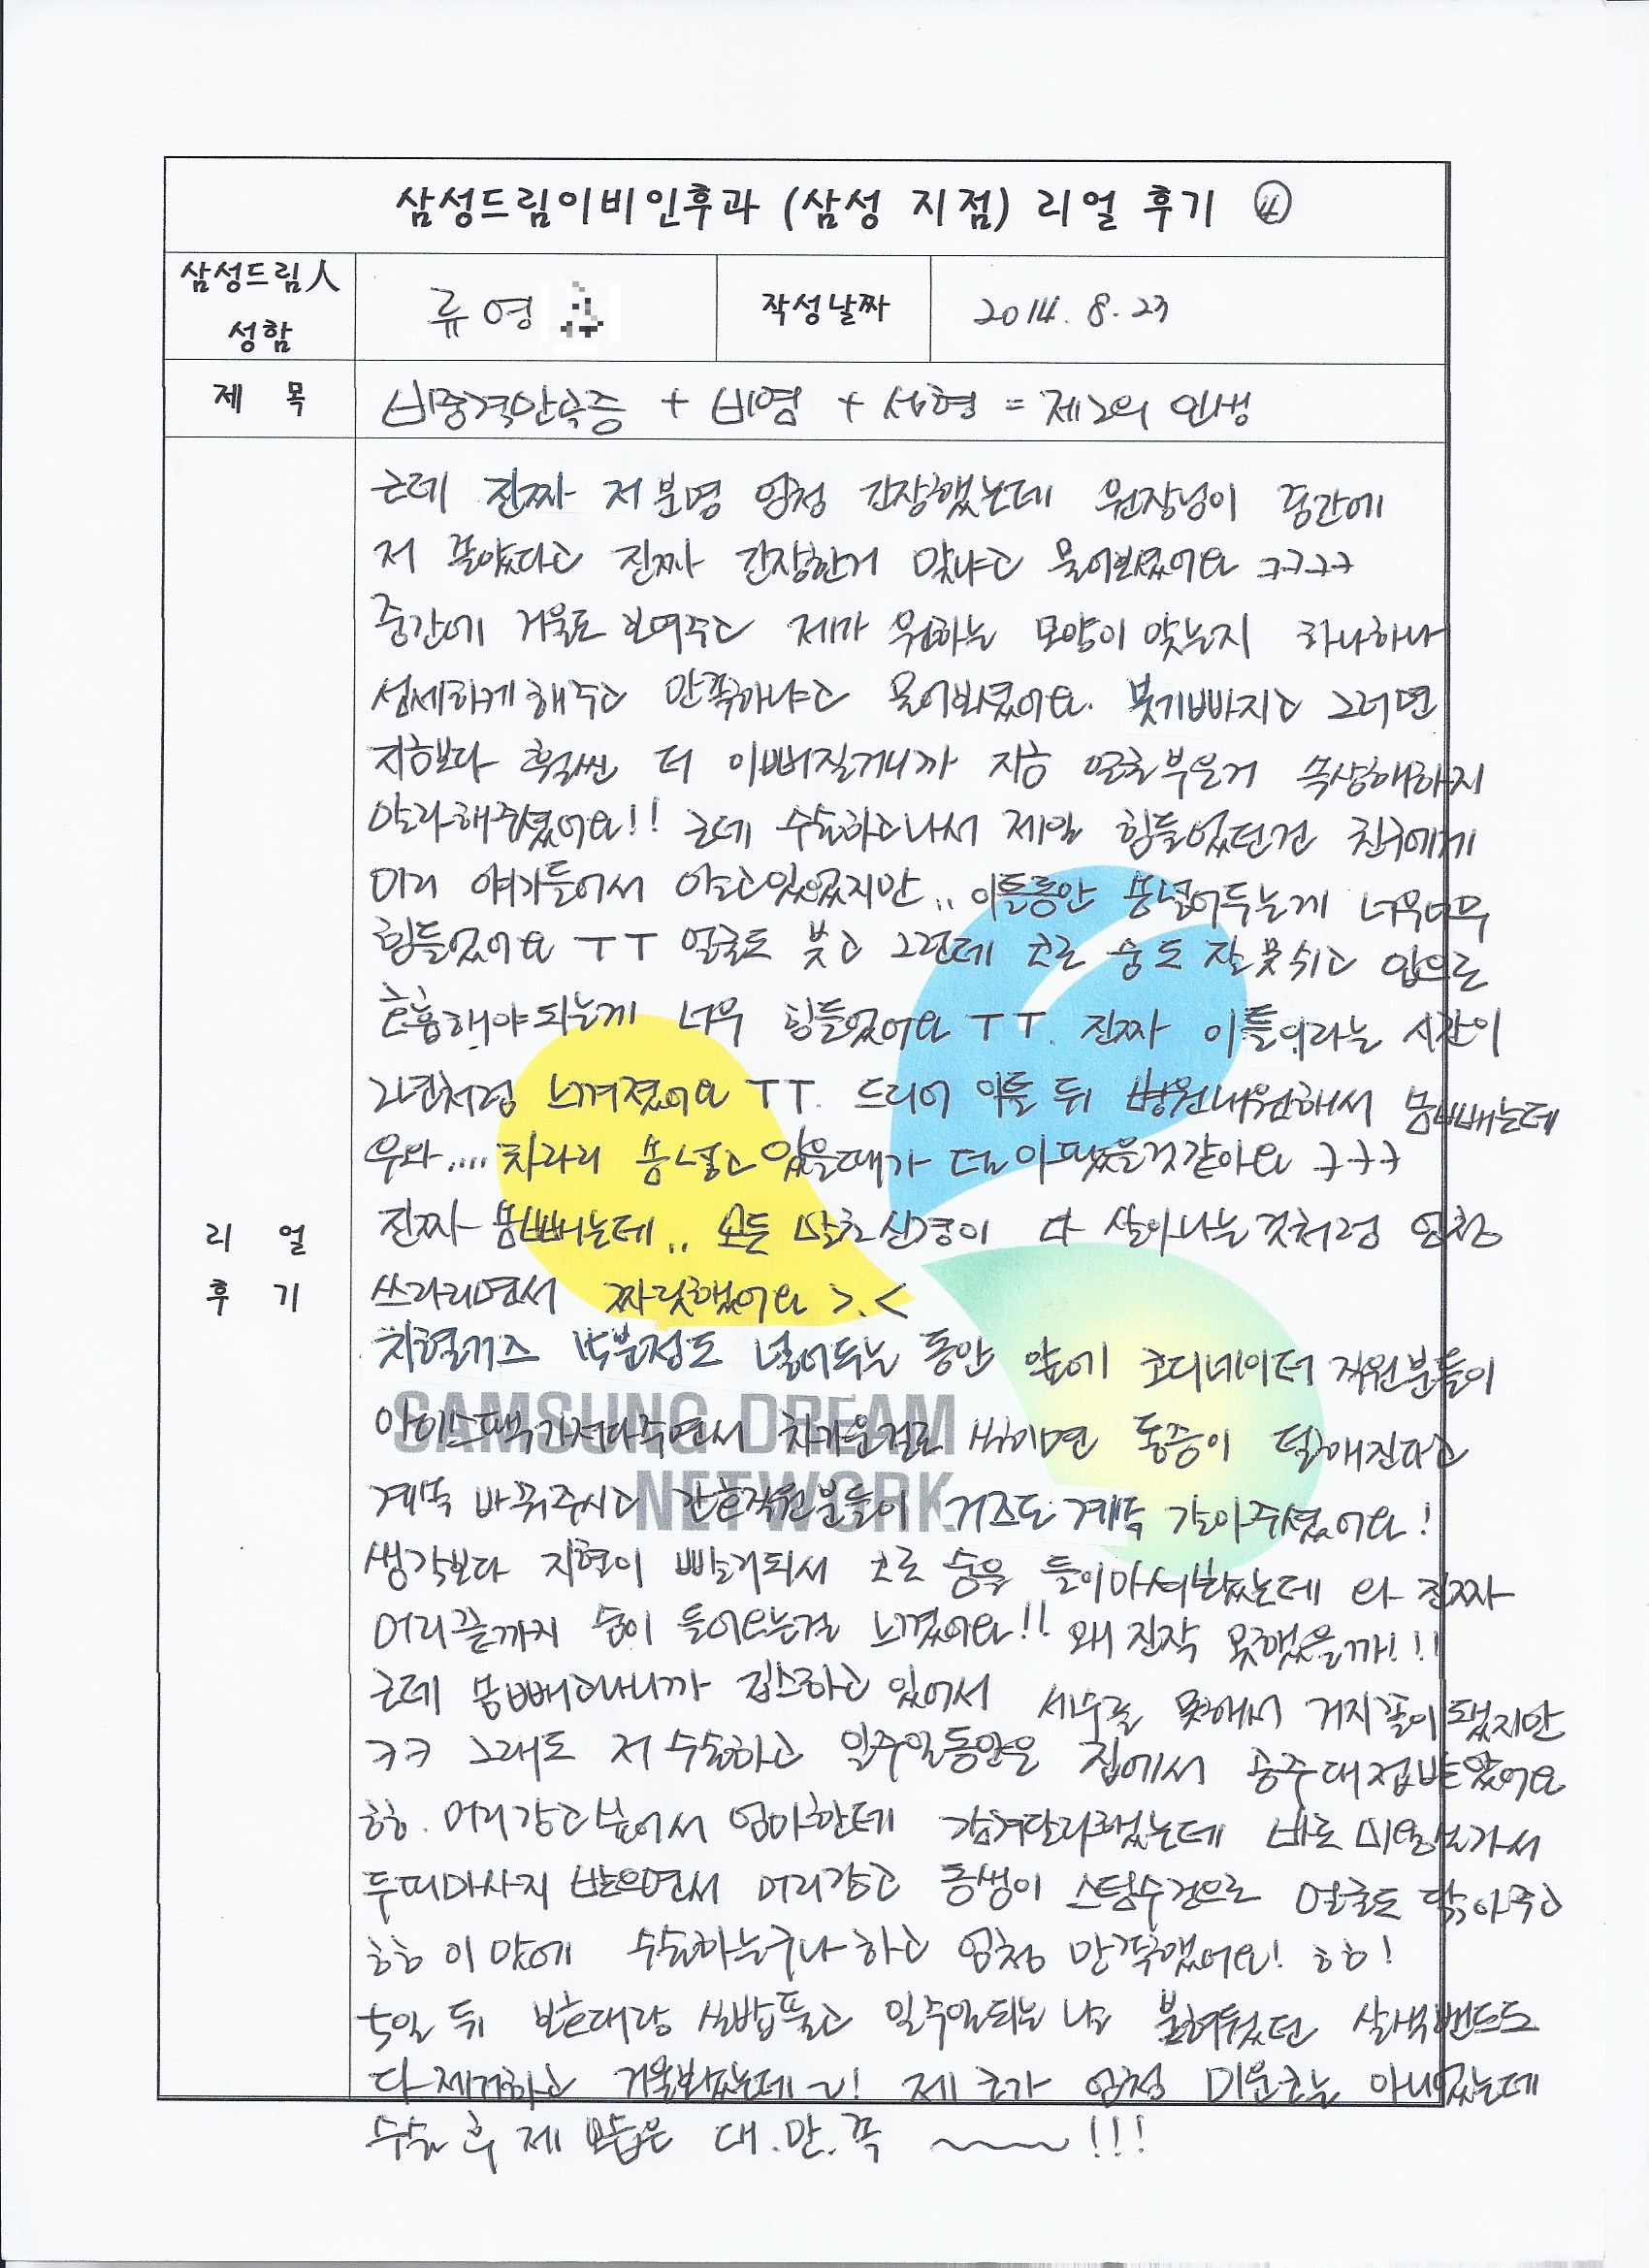 삼성드림이비인후과 (삼성 지점) 리얼 후기 ④
삼성드림人
성함
류영
작성날짜
2014. 8. 23
제 목
비중격만곡증 + 비염 + 성형 = 제2의 인생
근데 진짜 저 분명 엄청 긴장했는데 원장님이 중간에
저 졸았다고 진짜 긴장한거 맞냐고 물어보셨어요 ㅋㅋㅋㅋ
중간에 거울도 보여주고 제가 원하는 모양이 맞는지 하나하나
섬세하게 해주고 만족하냐고 물어보셨어요. 붓기빠지고 그러면
지금보다 훨씬 더 이뻐질거니까 지금 얼굴부은거 속상해하지
말라해주셨어요!! 근데 수술하고나서 제일 힘들었던건 친구에게
미리 얘기들어서 알고있었지만.. 이틀동안 솜넣어두는게 너무너무
힘들었어요 ㅜㅜ 얼굴도 붓고 그런데 코로 숨도 잘못쉬고 입으로
호흡해야되는게 너무 힘들었어요 ㅜㅜ. 진짜 이틀이라는 시간이
2년처럼 느껴졌어요 ㅜㅜ. 드디어 이틀 뒤 병원내원해서 솜빼는데
우와.... 차라리 솜넣고 있을때가 덜 아팠을것같아요 ㅋㅋㅋ
진짜 솜빼는데.. 모든 말초신경이 다 살아나는 것처럼 엄청
리 얼
후 기
쓰라리면서 짜릿했어요 >.<
지혈거즈 15분정도 넣어두는 동안 앞에 코디네이터 직원분들이
SAMSUNG DREAM
NETWORK
아이스팩가져다주면서 차가운걸로 쏘이면 통증이 덜해진다고
계속 바꿔주시고 간호직원분들이 거즈도 계속 갈아주셨어요!
생각보다 지혈이 빨리되서 코로 숨을 들이마셔봤는데 와 진짜
머리끝까지 숨이 들어오는걸 느꼈어요!! 왜 진작 못했을까!!!
근데 솜빼고나니까 깁스하고 있어서 세수를 못해서 거지꼴이됐지만
ㅋㅋ 그래도 저 수술하고 일주일동안은 집에서 공주대접받았어요
ㅎㅎ. 머리감고싶어서 엄마한테 감겨달라했는데 바로 미용실가서
두피마사지 받으면서 머리감고 동생이 스팀수건으로 얼굴도 닦아주고
ㅎㅎ 이 맛에 수술하는구나 하고 엄청 만족했어요! ㅎㅎ!
5일 뒤 보호대랑 실밥풀고 일주일되는 날 붙여뒀던 살색밴드도
다 제거하고 거울봤는데~! 제 코가 엄청 미운코는 아니었는데
수술 후 제 모습은 대.만.족 ~~~ !!!